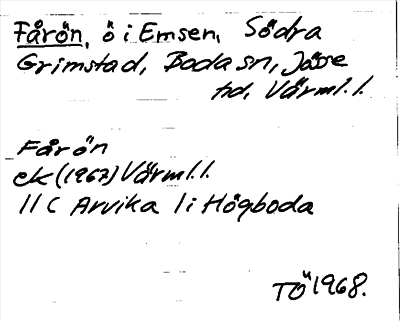 Fårön, ö i Emsen, Södra
Grimstad, Boda sn, Jösse
hd, Värml. l.
Fårön
ek (1967) Värml. l.
11 C Arvika 1 i Högboda
TÖ 1968.